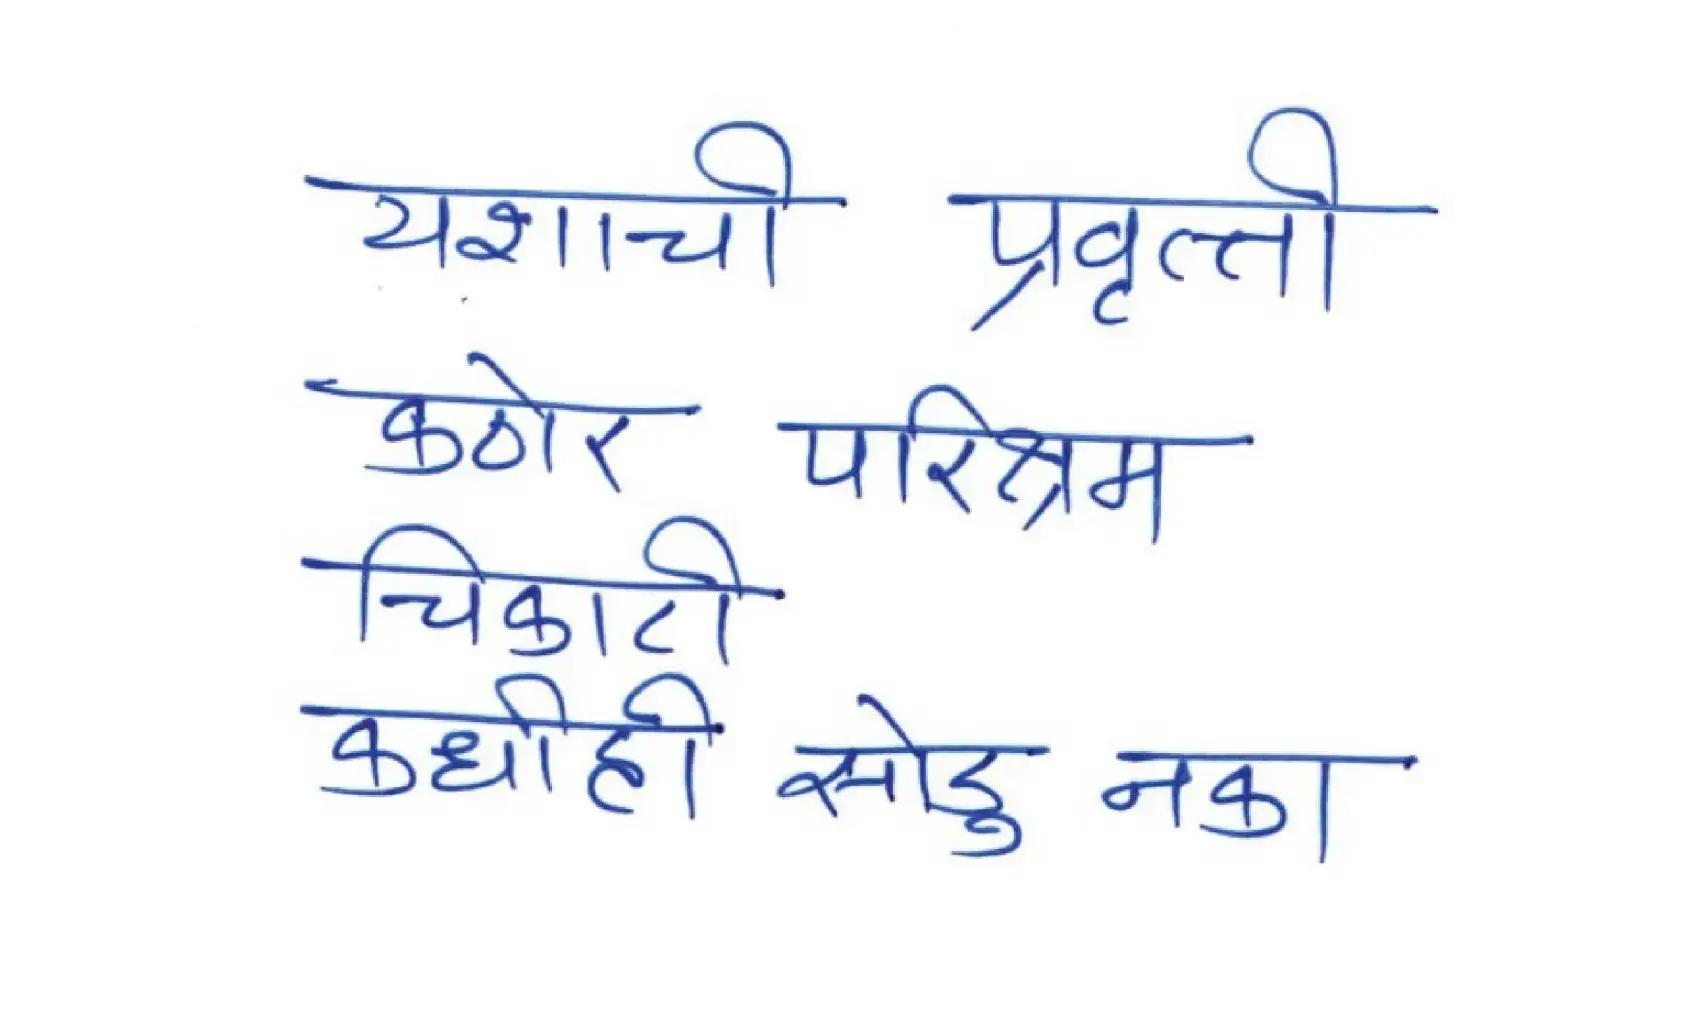 यशाची प्रवृत्ती
कठोर परिश्रम
चिकाटी
कधीही सोडु नका